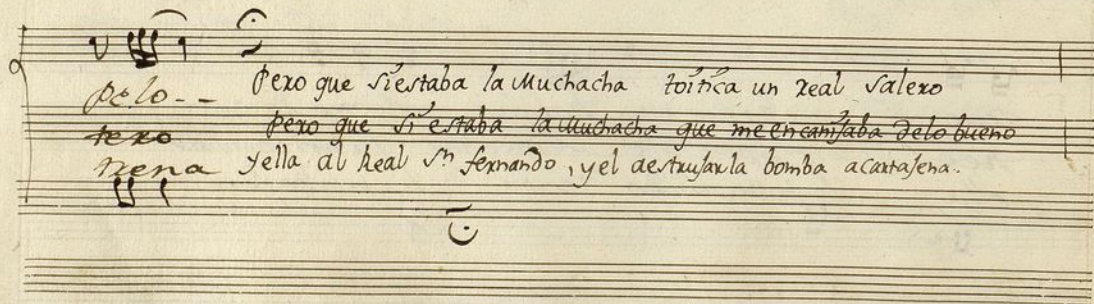 pelo-- Pero que si estaba la Muchacha toitica un real salero
tero Pero que si estaba la Muchacha que me encanijaba delo bueno
nena y ella al Real Sn fernando, y el aestrujarla bomba acartajena.